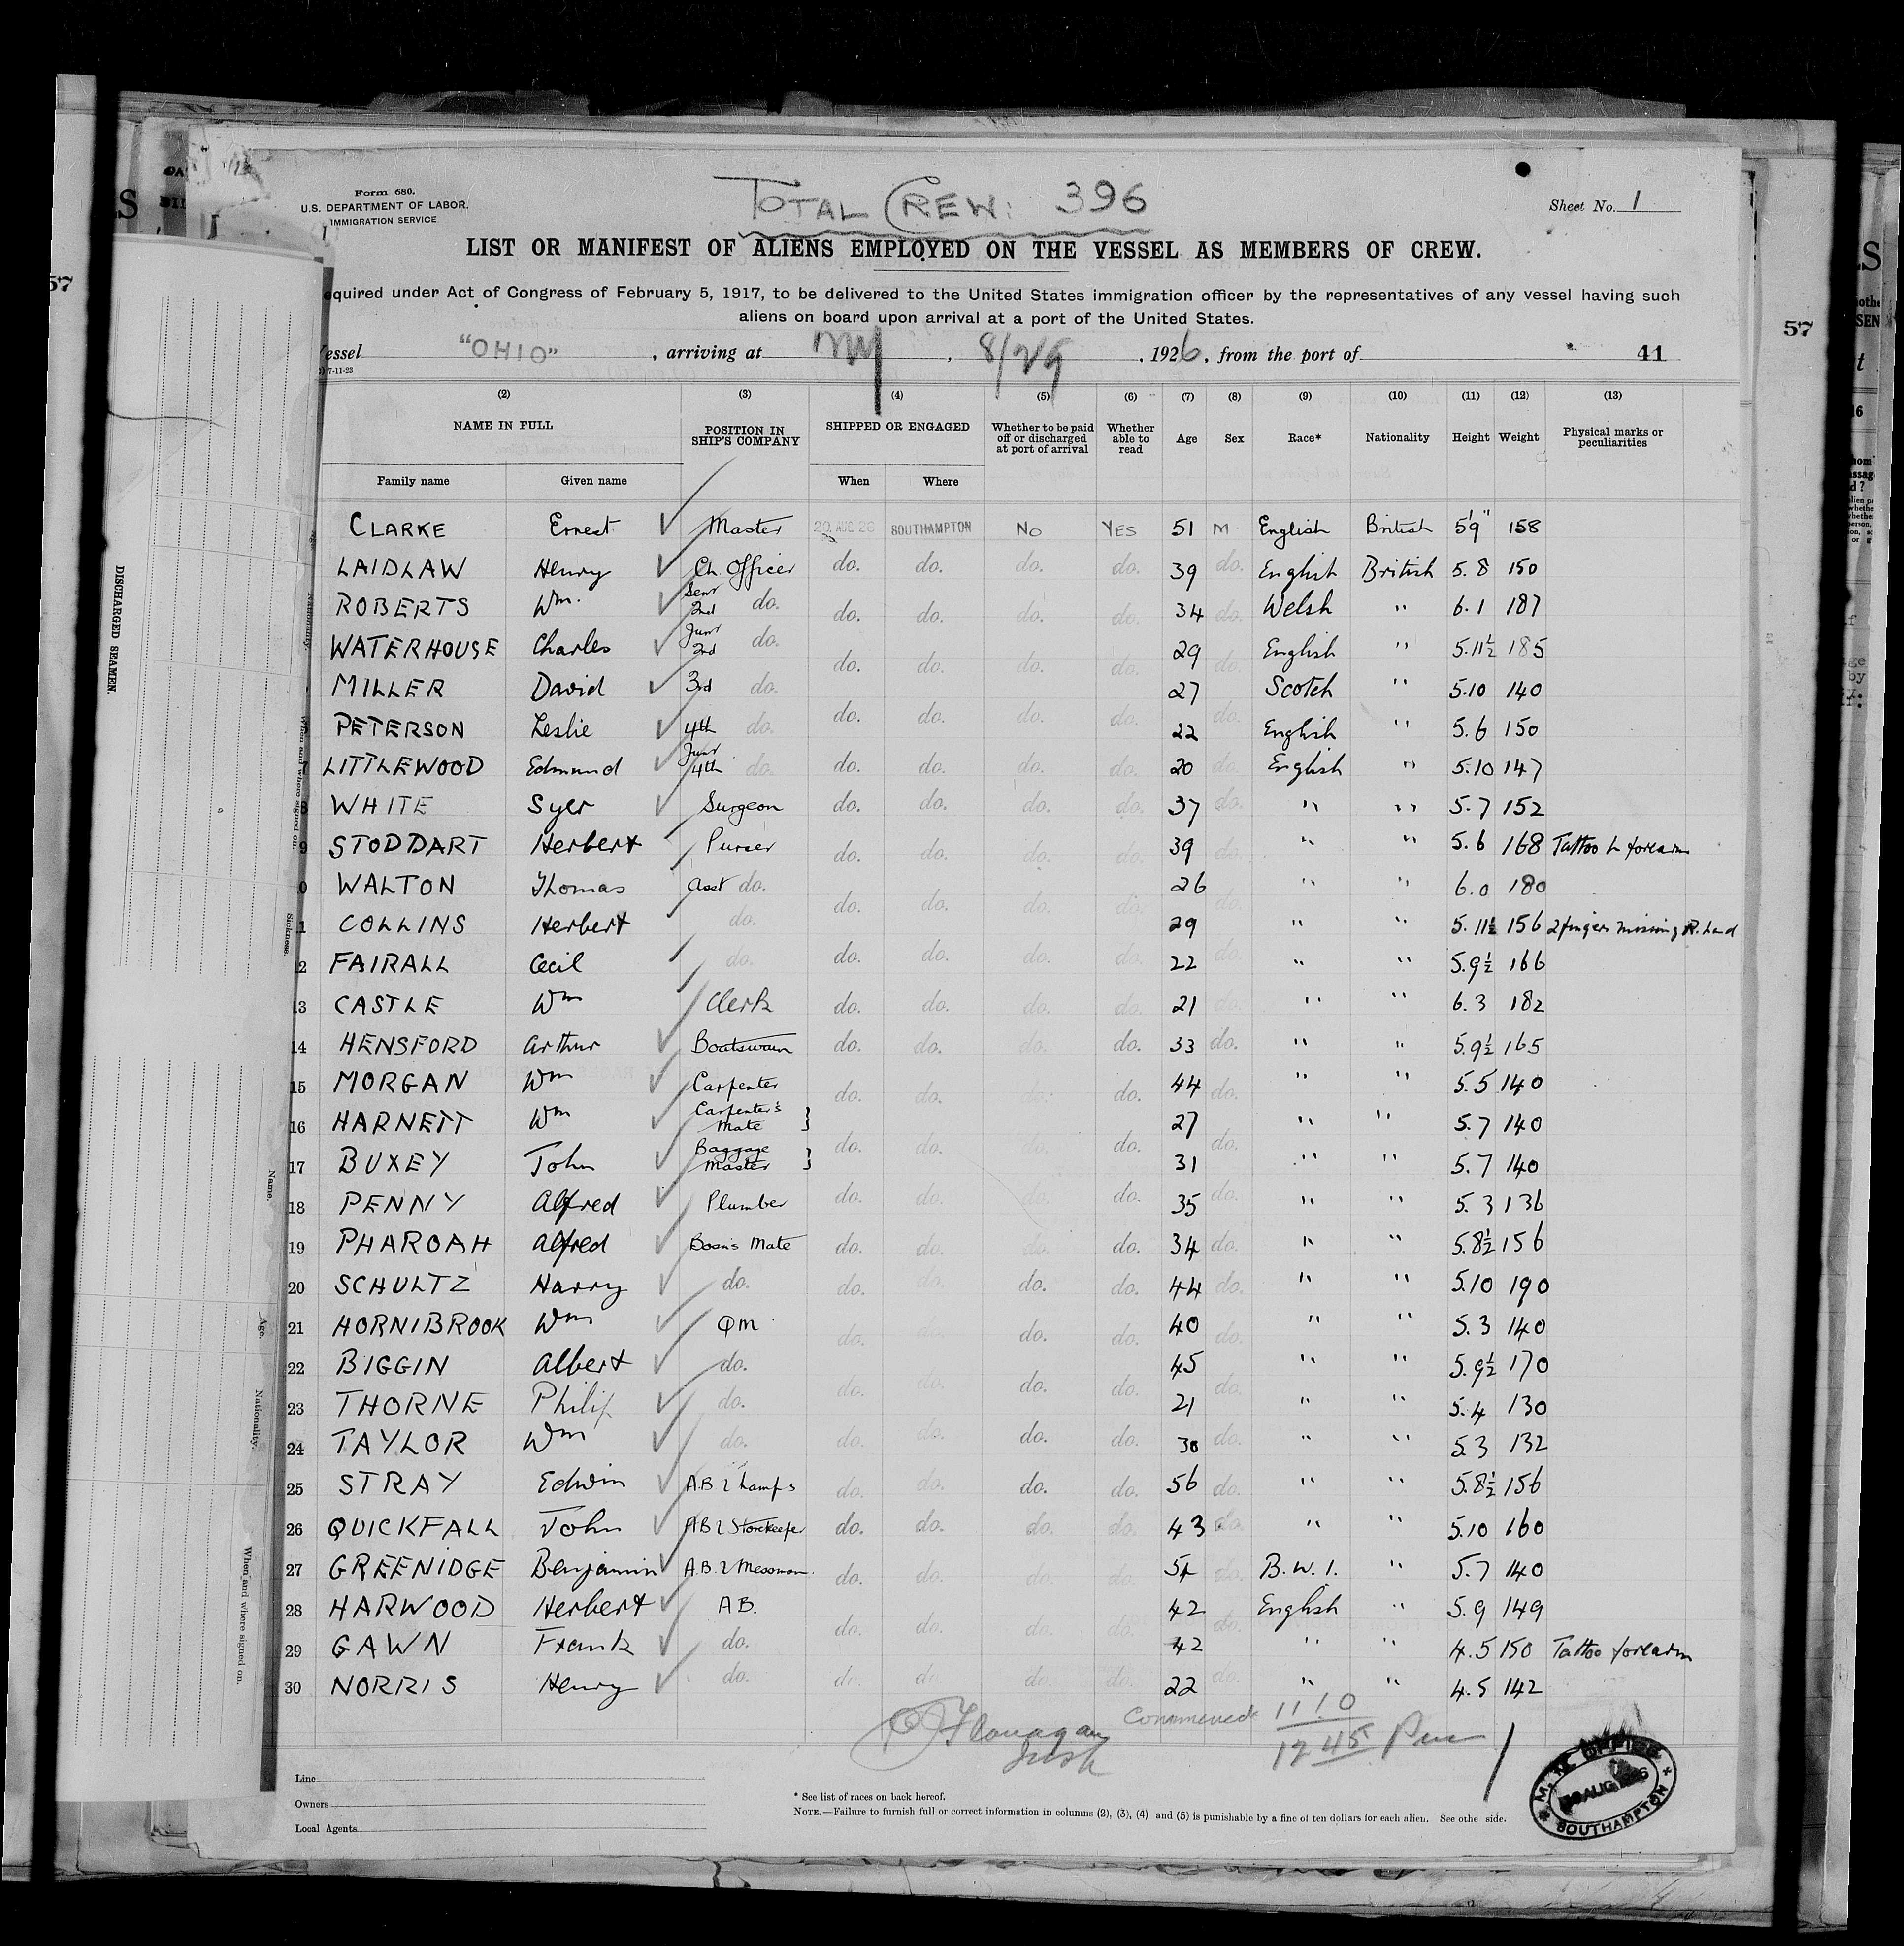 Form 680.
U.S. DEPARTMENT OF LABOR.
IMMIGRATION SERVICE
TOTAL CREW: 396
Sheet No. 1
LIST OR MANIFEST OF ALIENS EMPLOYED ON THE VESSEL AS MEMBERS OF CREW.
equired under Act of Congress of February 5, 1917, to be delivered to the United States immigration officer by the representatives of any vessel having such
aliens on board upon arrival at a port of the United States.
essel "OHIO", arriving at NY, 8/29, 1926, from the port of 41
7-11-23
57
57
(2) (3) (4) (5) (6) (7) (8) (9) (10) (11) (12) (13)
NAME IN FULL POSITION IN SHIP'S COMPANY SHIPPED OR ENGAGED Whether to be paid off or discharged at port of arrival Whether able to read Age Sex Race* Nationality Height Weight Physical marks or peculiarities
Family name Given name When Where
CLARKE Ernest Master 20 AUG 26 SOUTHAMPTON No YES 51 M English British 5'9" 158
LAIDLAW Henry Ch. Officer do. do. do. do. 39 do. English British 5.8 150
ROBERTS Wm. Senr 2nd do. do. do. do. do. 34 do. Welsh " 6.1 187
WATERHOUSE Charles Junr 2nd do. do. do. do. do. 29 do. English " 5.11½ 185
MILLER David 3rd do. 27 Scotch " 5.10 140
PETERSON Leslie 4th do. do. do. do. do. 22 do. English " 5.6 150
7 LITTLEWOOD Edmund Junr 4th do. do. do. do. do. 20 do. English " 5.10 147
8 WHITE Syer Surgeon do. do. do. do. 37 do. " " 5.7 152
9 STODDART Herbert Purser do. do. do. do. 39 do. " " 5.6 168 Tattoo L forearm
0 WALTON Thomas Asst do. do. do. do. do. 26 do. " " 6.0 180
1 COLLINS Herbert do. 29 " " 5.11½ 156 2 fingers missing R. hand
2 FAIRALL Cecil do. do. do. do. do. 22 do. " " 5.9½ 166
13 CASTLE Wm Clerk do. do. do. do. 21 do. " " 6.3 182
14 HENSFORD Arthur Boatswain do. do. do. do. 33 do. " " 5.9½ 165
15 MORGAN Wm Carpenter do. do. do. do. 44 do. " " 5.5 140
16 HARNETT Wm Carpenter's Mate } 27 " " 5.7 140
17 BUXEY John Baggage Master } do. do. do. do. 31 do. " " 5.7 140
18 PENNY Alfred Plumber do. do. do. do. 35 do. " " 5.3 136
19 PHAROAH Alfred Bosn's Mate do. do. do. do. 34 do. " " 5.8½ 156
20 SCHULTZ Harry do. do. do. do. do. 44 do. " " 5.10 190
21 HORNIBROOK Wm QM do. do. do. do. 40 do. " " 5.3 140
22 BIGGIN Albert do. 45 " " 5.9½ 170
23 THORNE Philip do. do. do. do. do. 21 do. " " 5.4 130
24 TAYLOR Wm do. do. do. do. do. 30 do. " " 5.3 132
25 STRAY Edwin A.B. & Lamps do. do. do. do. 56 do. " " 5.8½ 156
26 QUICKFALL John AB & Storekeeper do. do. do. do. 43 do. " " 5.10 160
27 GREENIDGE Benjamin A.B. & Messman do. do. do. do. 51 do. B.W.I. " 5.7 140
28 HARWOOD Herbert A.B. do. do. do. do. 42 do. English " 5.9 149
29 GAWN Frank do. 42 " " 4.5 150 Tattoo forearm
30 NORRIS Henry do. do. do. do. do. 22 do. " " 4.5 142
Flanagan
Commenced 11 10
12 45
Line
Owners
Local Agents
* See list of races on back hereof.
NOTE.—Failure to furnish full or correct information in columns (2), (3), (4) and (5) is punishable by a fine of ten dollars for each alien. See othe side.
OFFICE
AUG 1926
SOUTHAMPTON
DISCHARGED SEAMEN.
Sickness.
Name.
Age.
Nationality.
When and where signed on.